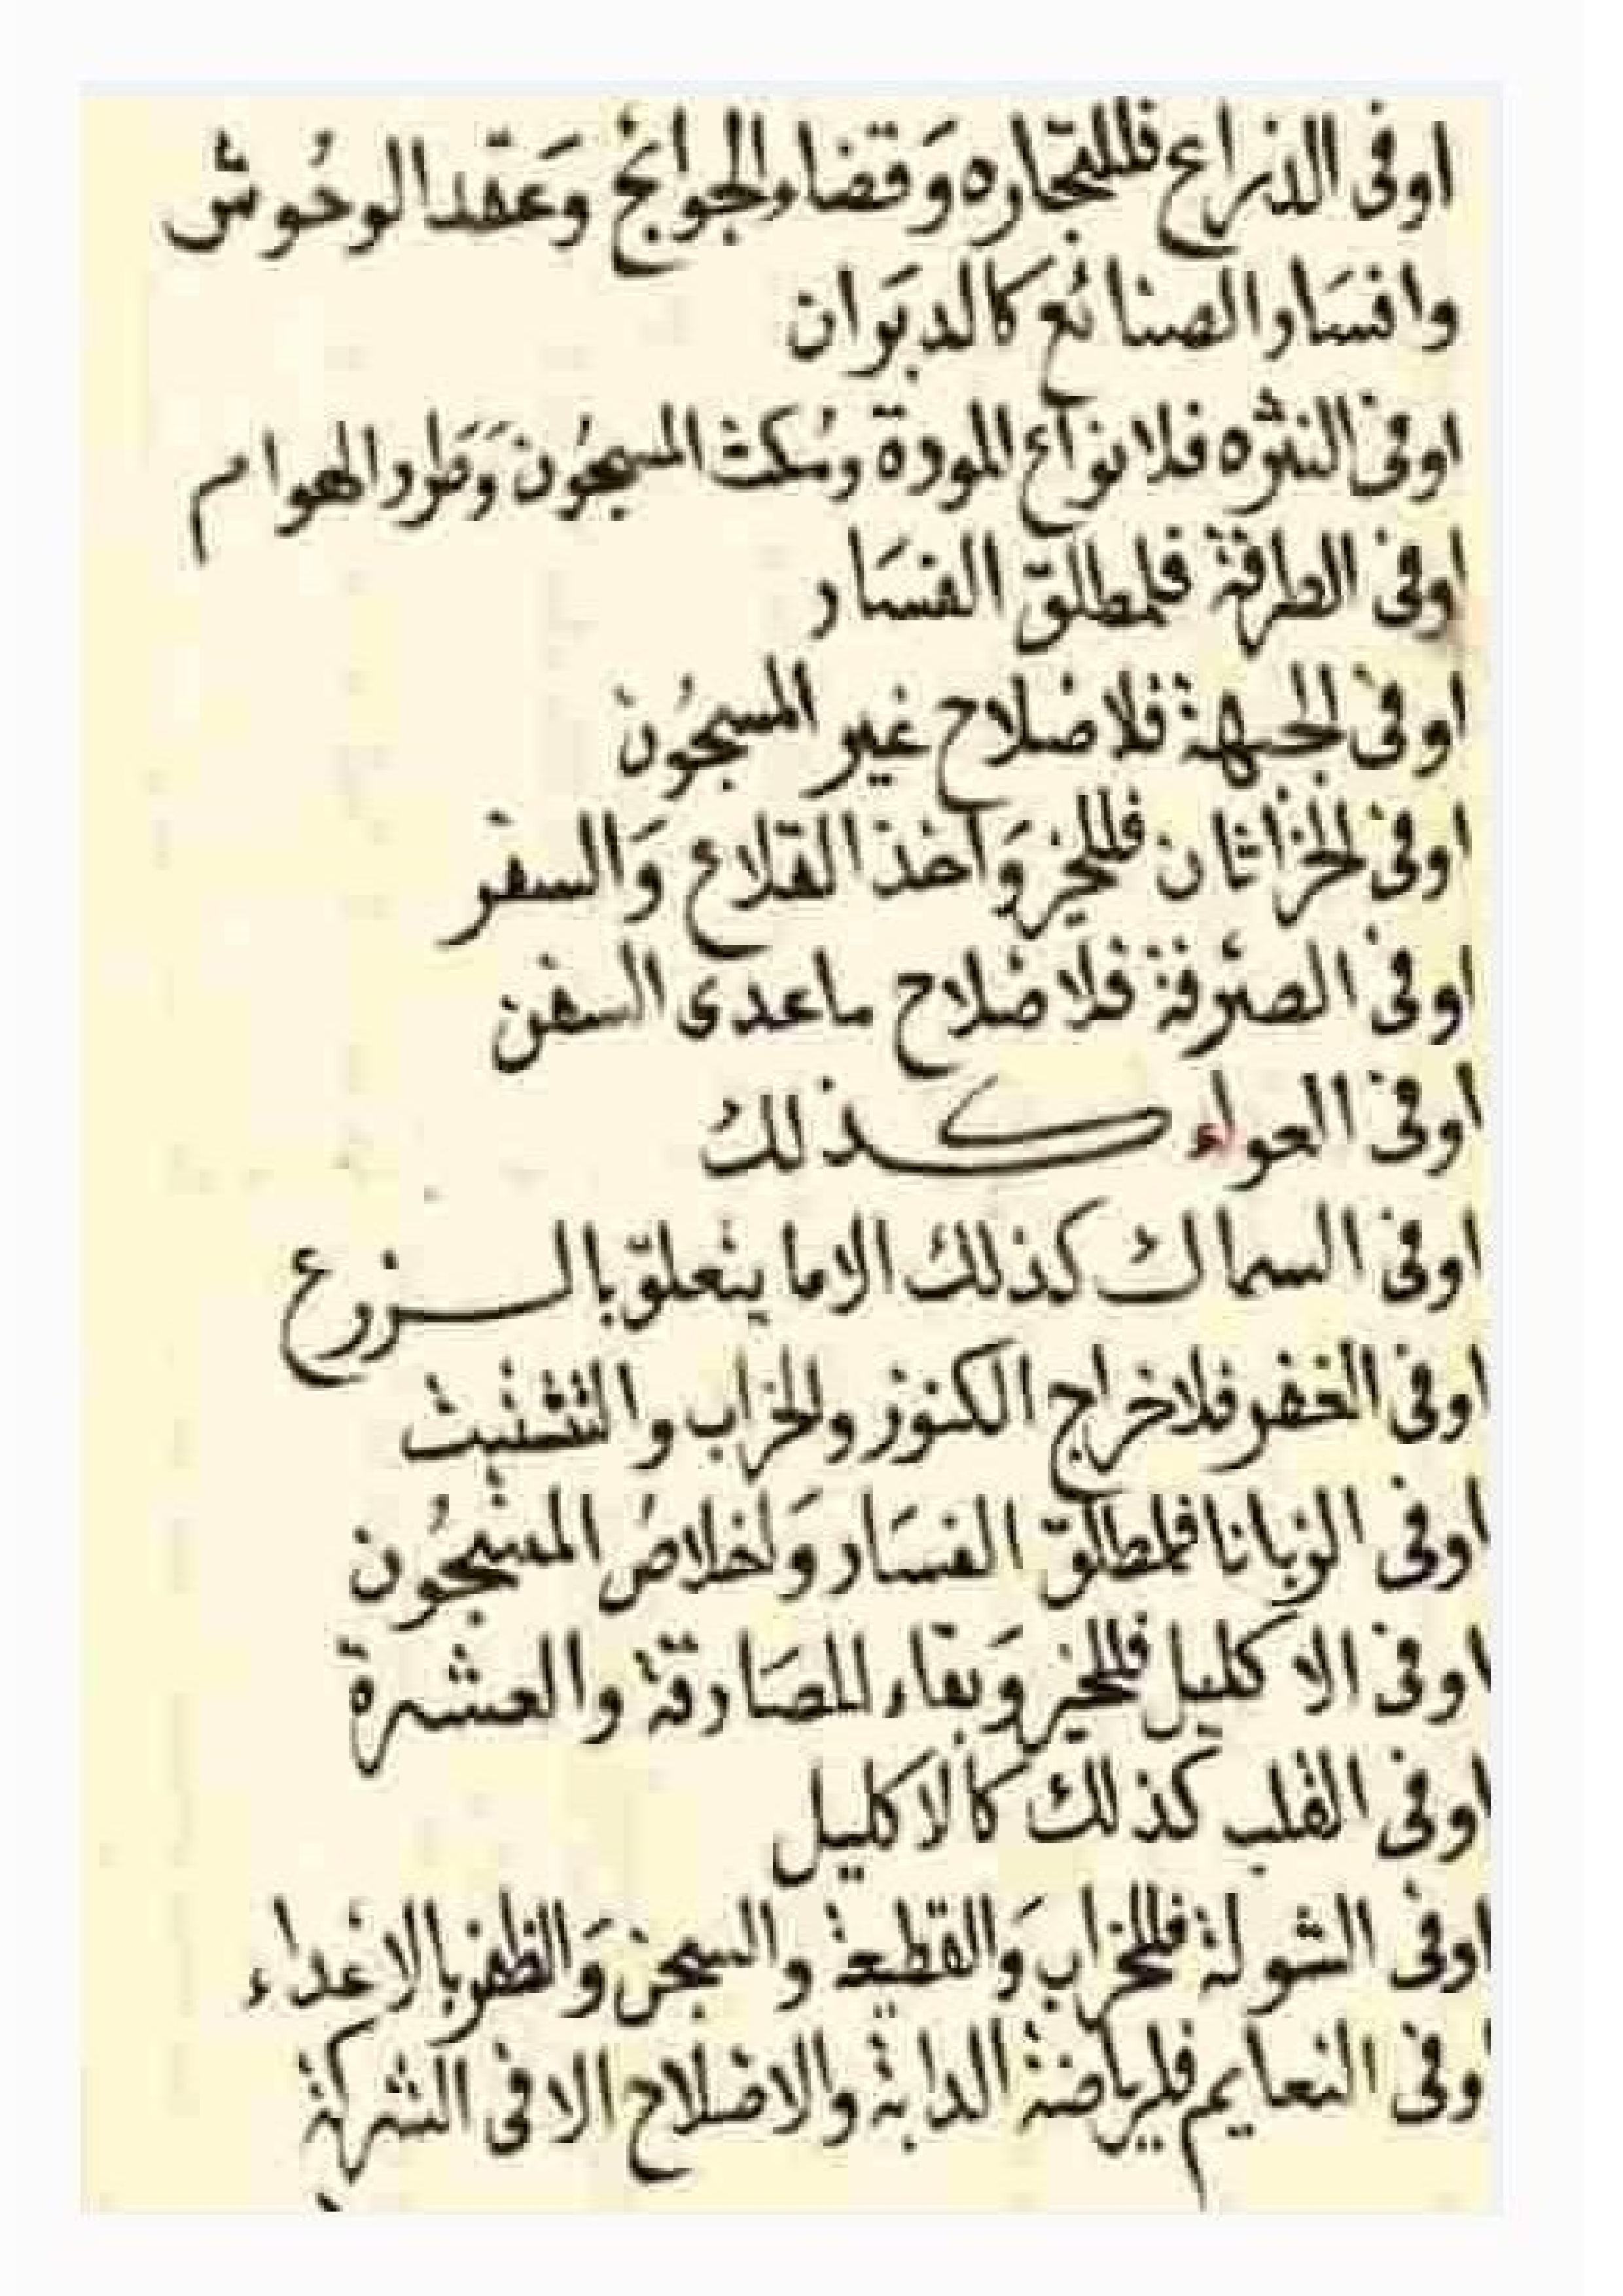 اوفى الذراع فللتجاره وقضاء الحوائج وعقد الوحوش
وافسار الصنائع كالدبران
اوفى النثره فلانواع المودة ومكث المسجون وطرد الهوام
اوفى الطرفة فلمطلق الفسار
اوفى الجبهة فلاصلاح غير المسجون
اوفى الخراثان فللخير واخذ القلاع والسفر
اوفى الصرفة فلاصلاح ماعدى السفن
اوفى العواء كذلك
اوفى السماك كذلك الا ما يتعلق بالزرع
اوفى الغفر فلاخراج الكنوز والخراب والتشتيت
اوفى الزبانا فلمطلق الفسار واخلاص المسجون
اوفى الاكليل فللخير وبقاء للصارقة والعشرة
اوفى القلب كذلك كالاكليل
اوفى الشولة فللخراب والقطيعة والسجن والظفر بالاعداء
وفى النعايم فلرياضة الدابة والاصلاح الا فى الشركة